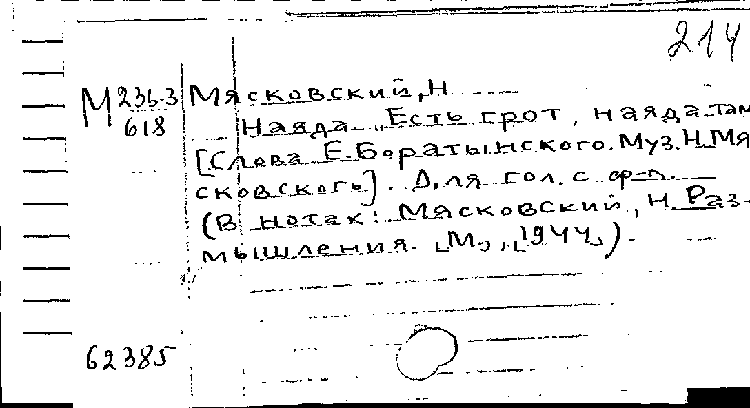 214
М 236-3 Мясковский, Н
618 Наяда „Есть грот, наяда там
[Слова Е. Боратынского. Муз. Н. Мя
сковского]. Для гол. с ф-п.
(В нотах: Мясковский, Н. Раз-
мышления. [М., 1944,).
62385